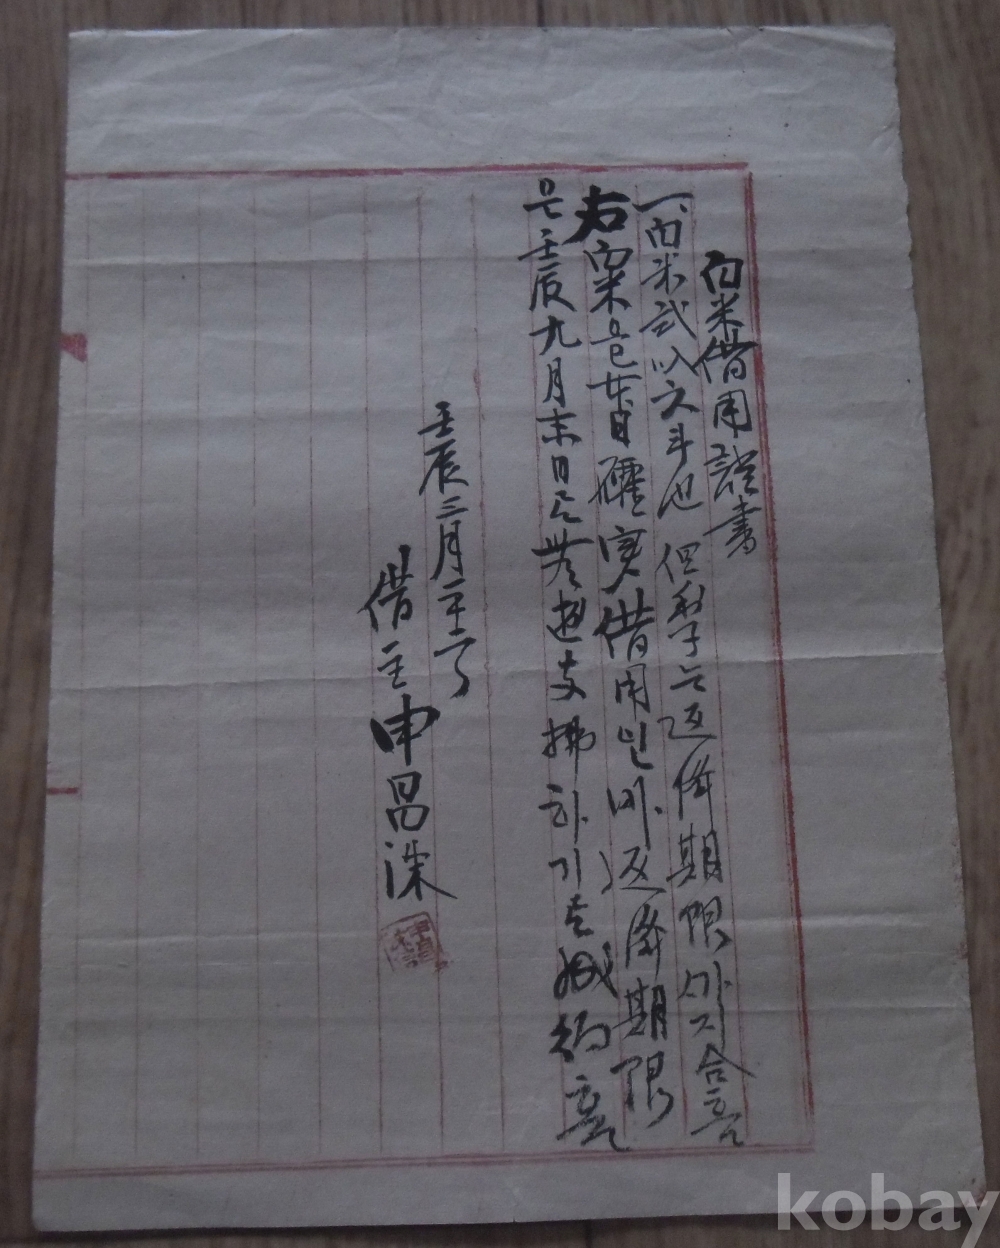 白米借用證書
一, 白米弐叺六斗也 但利子는返濟期限까지合意
右粟은 確實借用인바 返濟期限
은壬辰九月末日 支拂하기로 契約흠
壬辰三月二十二日
借主 申昌洙
kobay